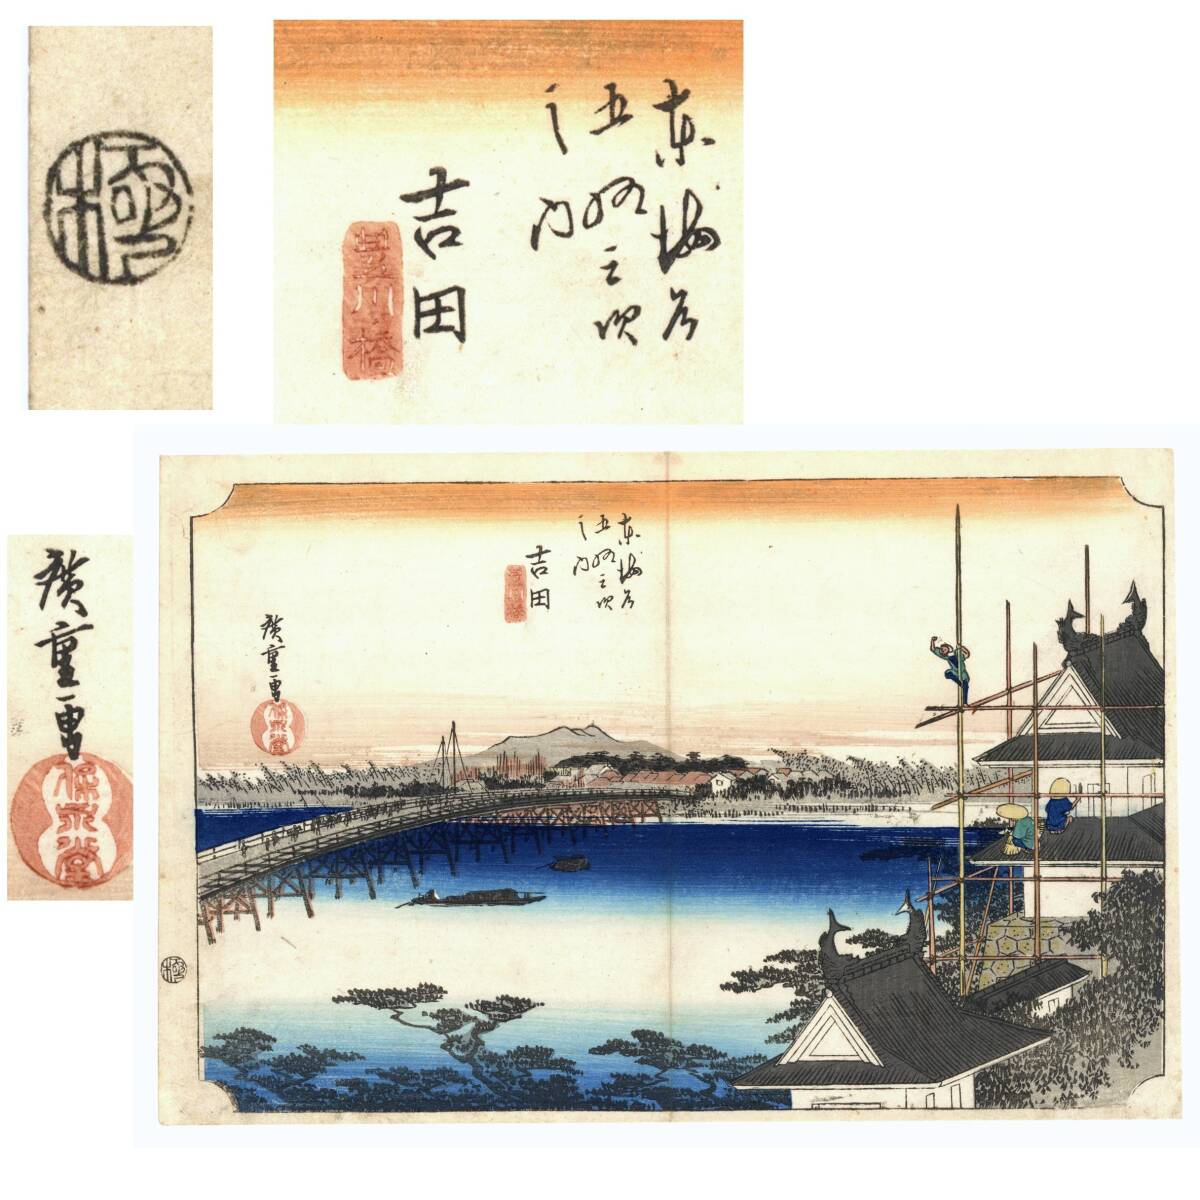 極
東海道
五拾三次
之内
吉田
豊川橋
廣重画
保永堂
東海道
五拾三次
之内
吉田
豊川橋
廣重画
保永堂
極